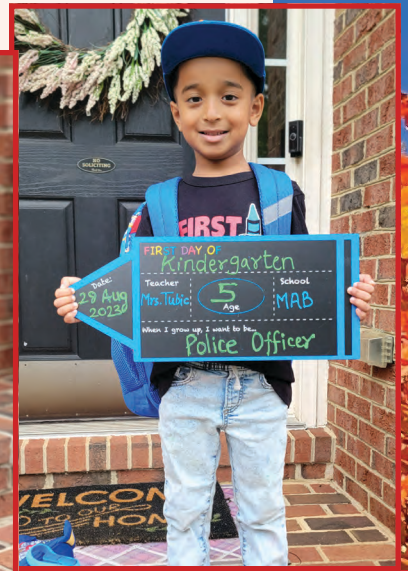 NO
SOLICITING
FIRST
FIRST DAY OF
Kindergarten
Date:
28 Aug
2023
Teacher
Mrs. Tubic
5
Age
School
MAB
When I grow up, I want to be...
Police Officer
WELCOM
TO OUR
HOM